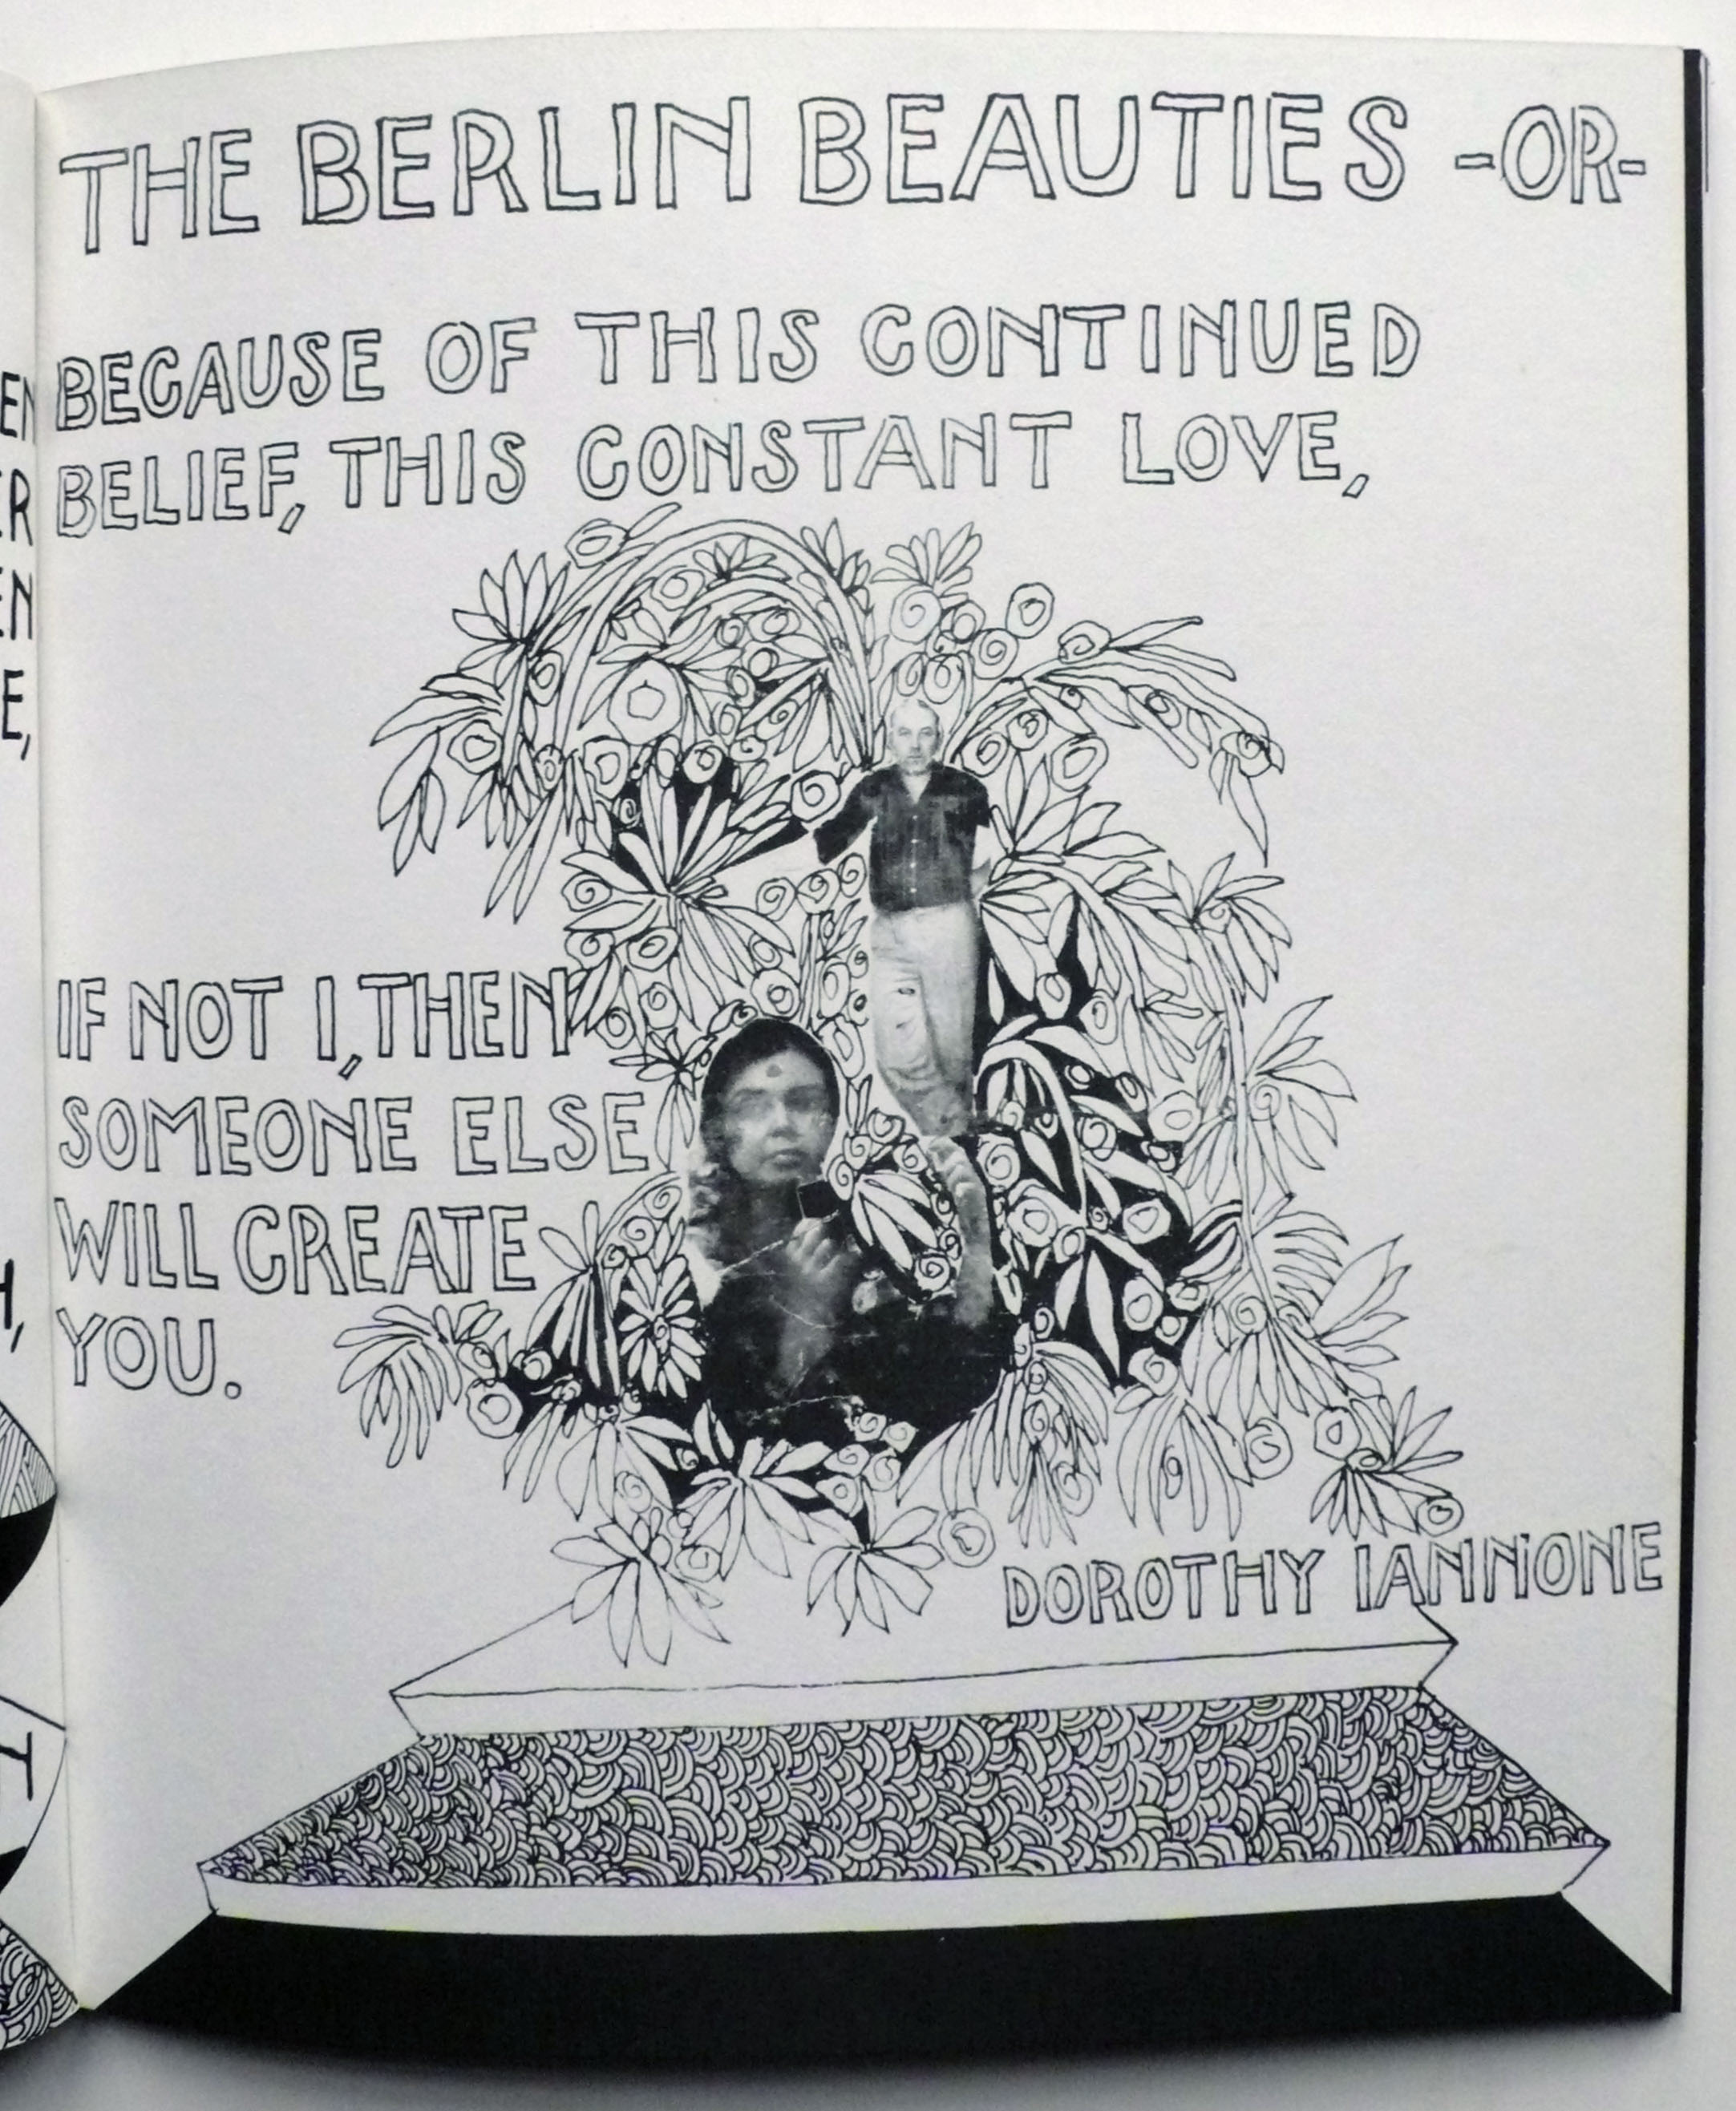 THE BERLIN BEAUTIES -OR-
BECAUSE OF THIS CONTINUED
BELIEF, THIS CONSTANT LOVE,
IF NOT I, THEN
SOMEONE ELSE
WILL CREATE
YOU.
DOROTHY IANNONE